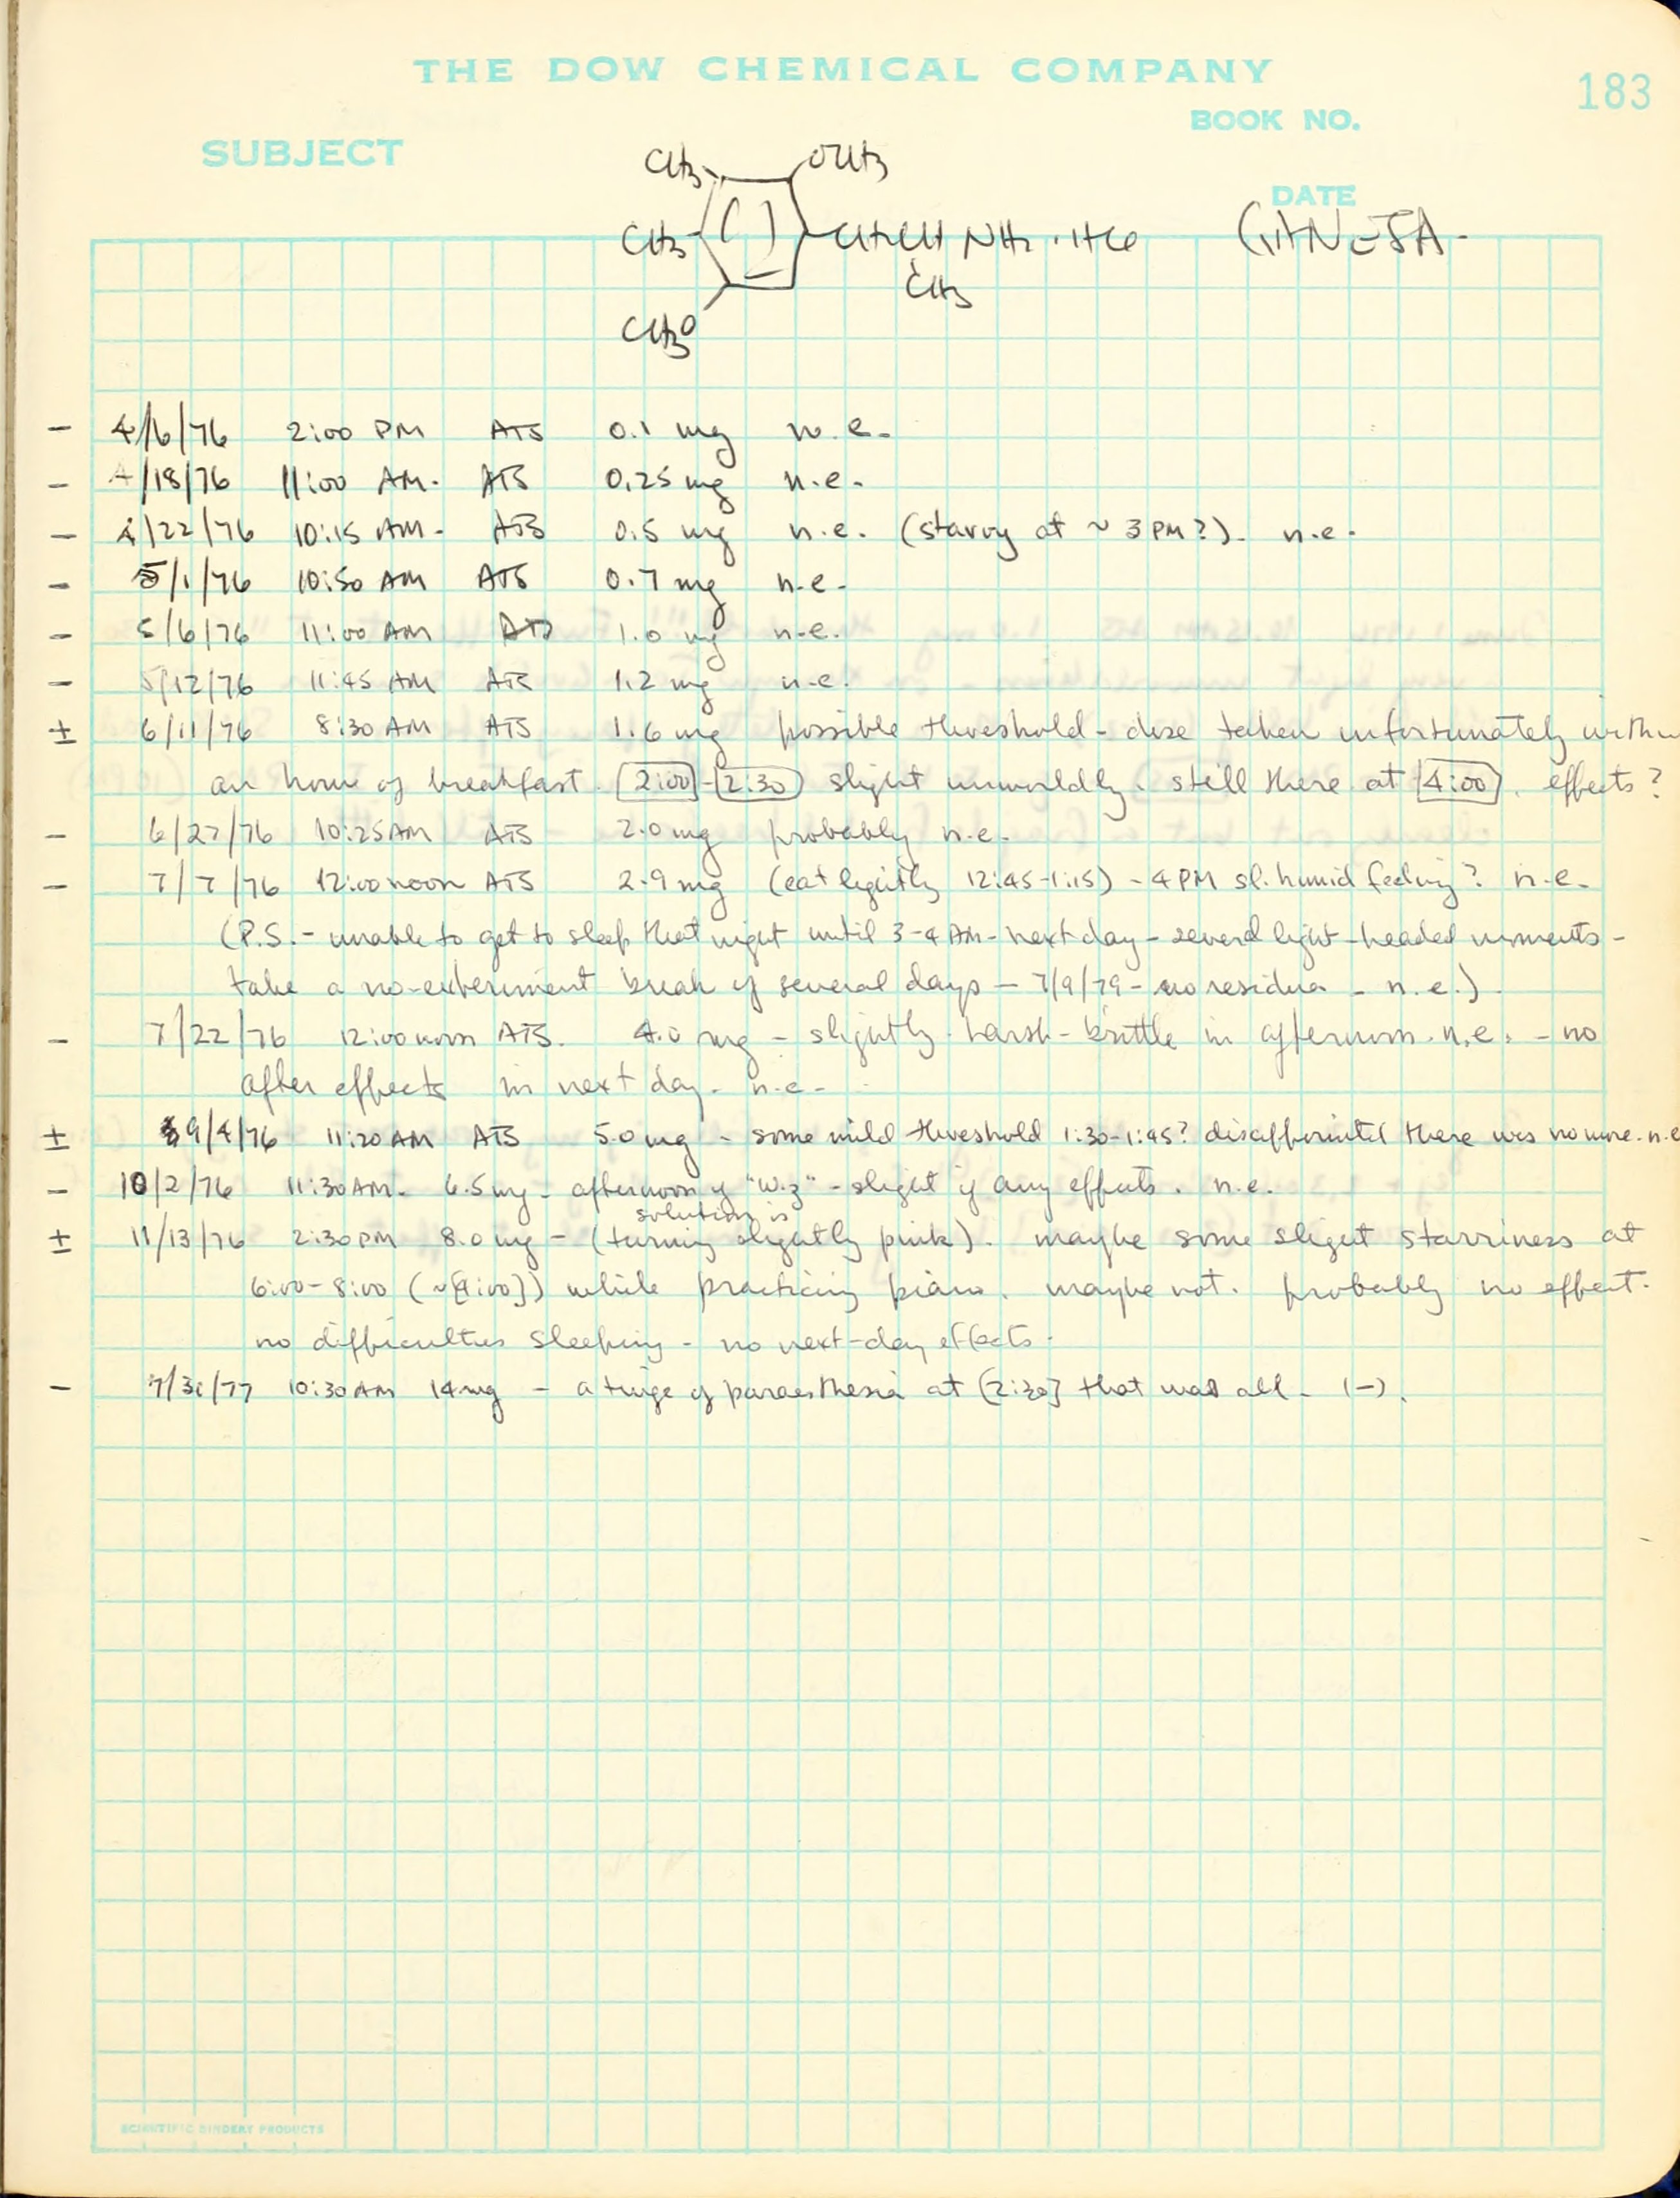 THE DOW CHEMICAL COMPANY
183
BOOK NO.
SUBJECT
DATE
CH3 OCH3
CH3 CH2CH NH2 · HCl GANESHA
CH3
CH3O
- 4/6/76 2:00 PM ATS 0.1 mg n.e.
- 4/18/76 11:00 AM. ATS 0.25 mg n.e.
- 4/22/76 10:15 AM. ATS 0.5 mg n.e. (starry at ~ 3 PM?). n.e.
- 5/1/76 10:50 AM ATS 0.7 mg n.e.
- 5/6/76 11:00 AM ATS 1.0 mg n.e.
- 5/12/76 11:45 AM ATS 1.2 mg n.e.
± 6/11/76 8:30 AM ATS 1.6 mg possible threshold - dose taken unfortunately within
an hour of breakfast. [2:00]-[2:30] slight unworldly. still there at [4:00]. effects?
- 6/27/76 10:25 AM ATS 2.0 mg probably n.e.
- 7/7/76 12:00 noon ATS 2.9 mg (eat lightly 12:45-1:15) - 4 PM sl. humid feeling? n.e.
(P.S. - unable to get to sleep that night until 3-4 AM - next day - several light-headed moments -
take a no-experiment break of several days - 7/9/79 - no residua - n.e.)
- 7/22/76 12:00 noon ATS. 4.0 mg - slightly harsh-brittle in afternoon. n.e. - no
after effects in next day. n.e.
± 9/4/76 11:20 AM ATS 5.0 mg - some mild threshold 1:30-1:45? disappointed there was no more. n.e
- 10/2/76 11:30 AM. 6.5 mg - afternoon of "Wiz" - slight if any effects. n.e.
solution is
± 11/13/76 2:30 PM 8.0 mg - (turning slightly pink). maybe some slight starriness at
6:00-8:00 (~[4:00]) while practicing piano. maybe not. probably no effect.
no difficulties sleeping - no next-day effects.
- 7/31/77 10:30 AM 14 mg - a twinge of paraesthesia at [2:30] that was all - (-).
SCIENTIFIC BINDERY PRODUCTS